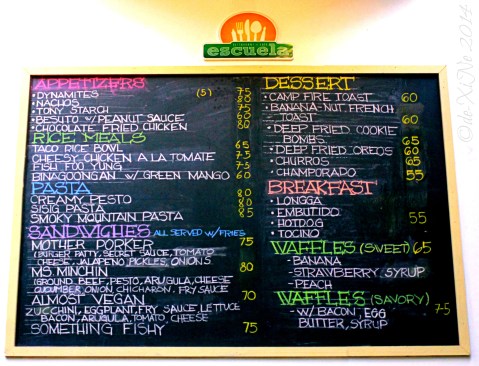 escuela
APPETIZERS
• DYNAMITES (5) 75
• NACHOS 80
• TONY STARCH 75
• BESUTO W/ PEANUT SAUCE 60
• CHOCOLATE FRIED CHICKEN 80
RICE MEALS
TACO RICE BOWL 65
CHEESY CHICKEN A LA TOMATE 75
FISH FOO YUNG 75
BINAGOONGAN W/ GREEN MANGO 60
PASTA
CREAMY PESTO 80
SISIG PASTA 80
SMOKY MOUNTAIN PASTA 85
SANDWICHES ALL SERVED W/ FRIES
MOTHER PORKER 75
(BURGER PATTY, SECRET SAUCE, TOMATO
CHEESE, JALAPENO, PICKLES, ONIONS
MS. MINCHIN 80
(GROUND BEEF, PESTO, ARUGULA, CHEESE
CUCUMBER ONION, CHICHARON, FRY SAUCE
ALMOST VEGAN 70
ZUCCHINI, EGGPLANT, FRY SAUCE, LETTUCE
BACON, ARUGULA, TOMATO, CHEESE
SOMETHING FISHY 75
DESSERT
• CAMP FIRE TOAST 60
• BANANA-NUT FRENCH
- TOAST 60
• DEEP FRIED COOKIE
BOMBS 65
• DEEP FRIED OREOS 60
• CHURROS 65
• CHAMPORADO 55
BREAKFAST
• LONGGA
• EMBUTIDO 55
• HOTDOG
• TOCINO
WAFFLES (SWEET) 65
- BANANA
- STRAWBERRY SYRUP
- PEACH
WAFFLES (SAVORY)
- W/ BACON, EGG 75
BUTTER, SYRUP